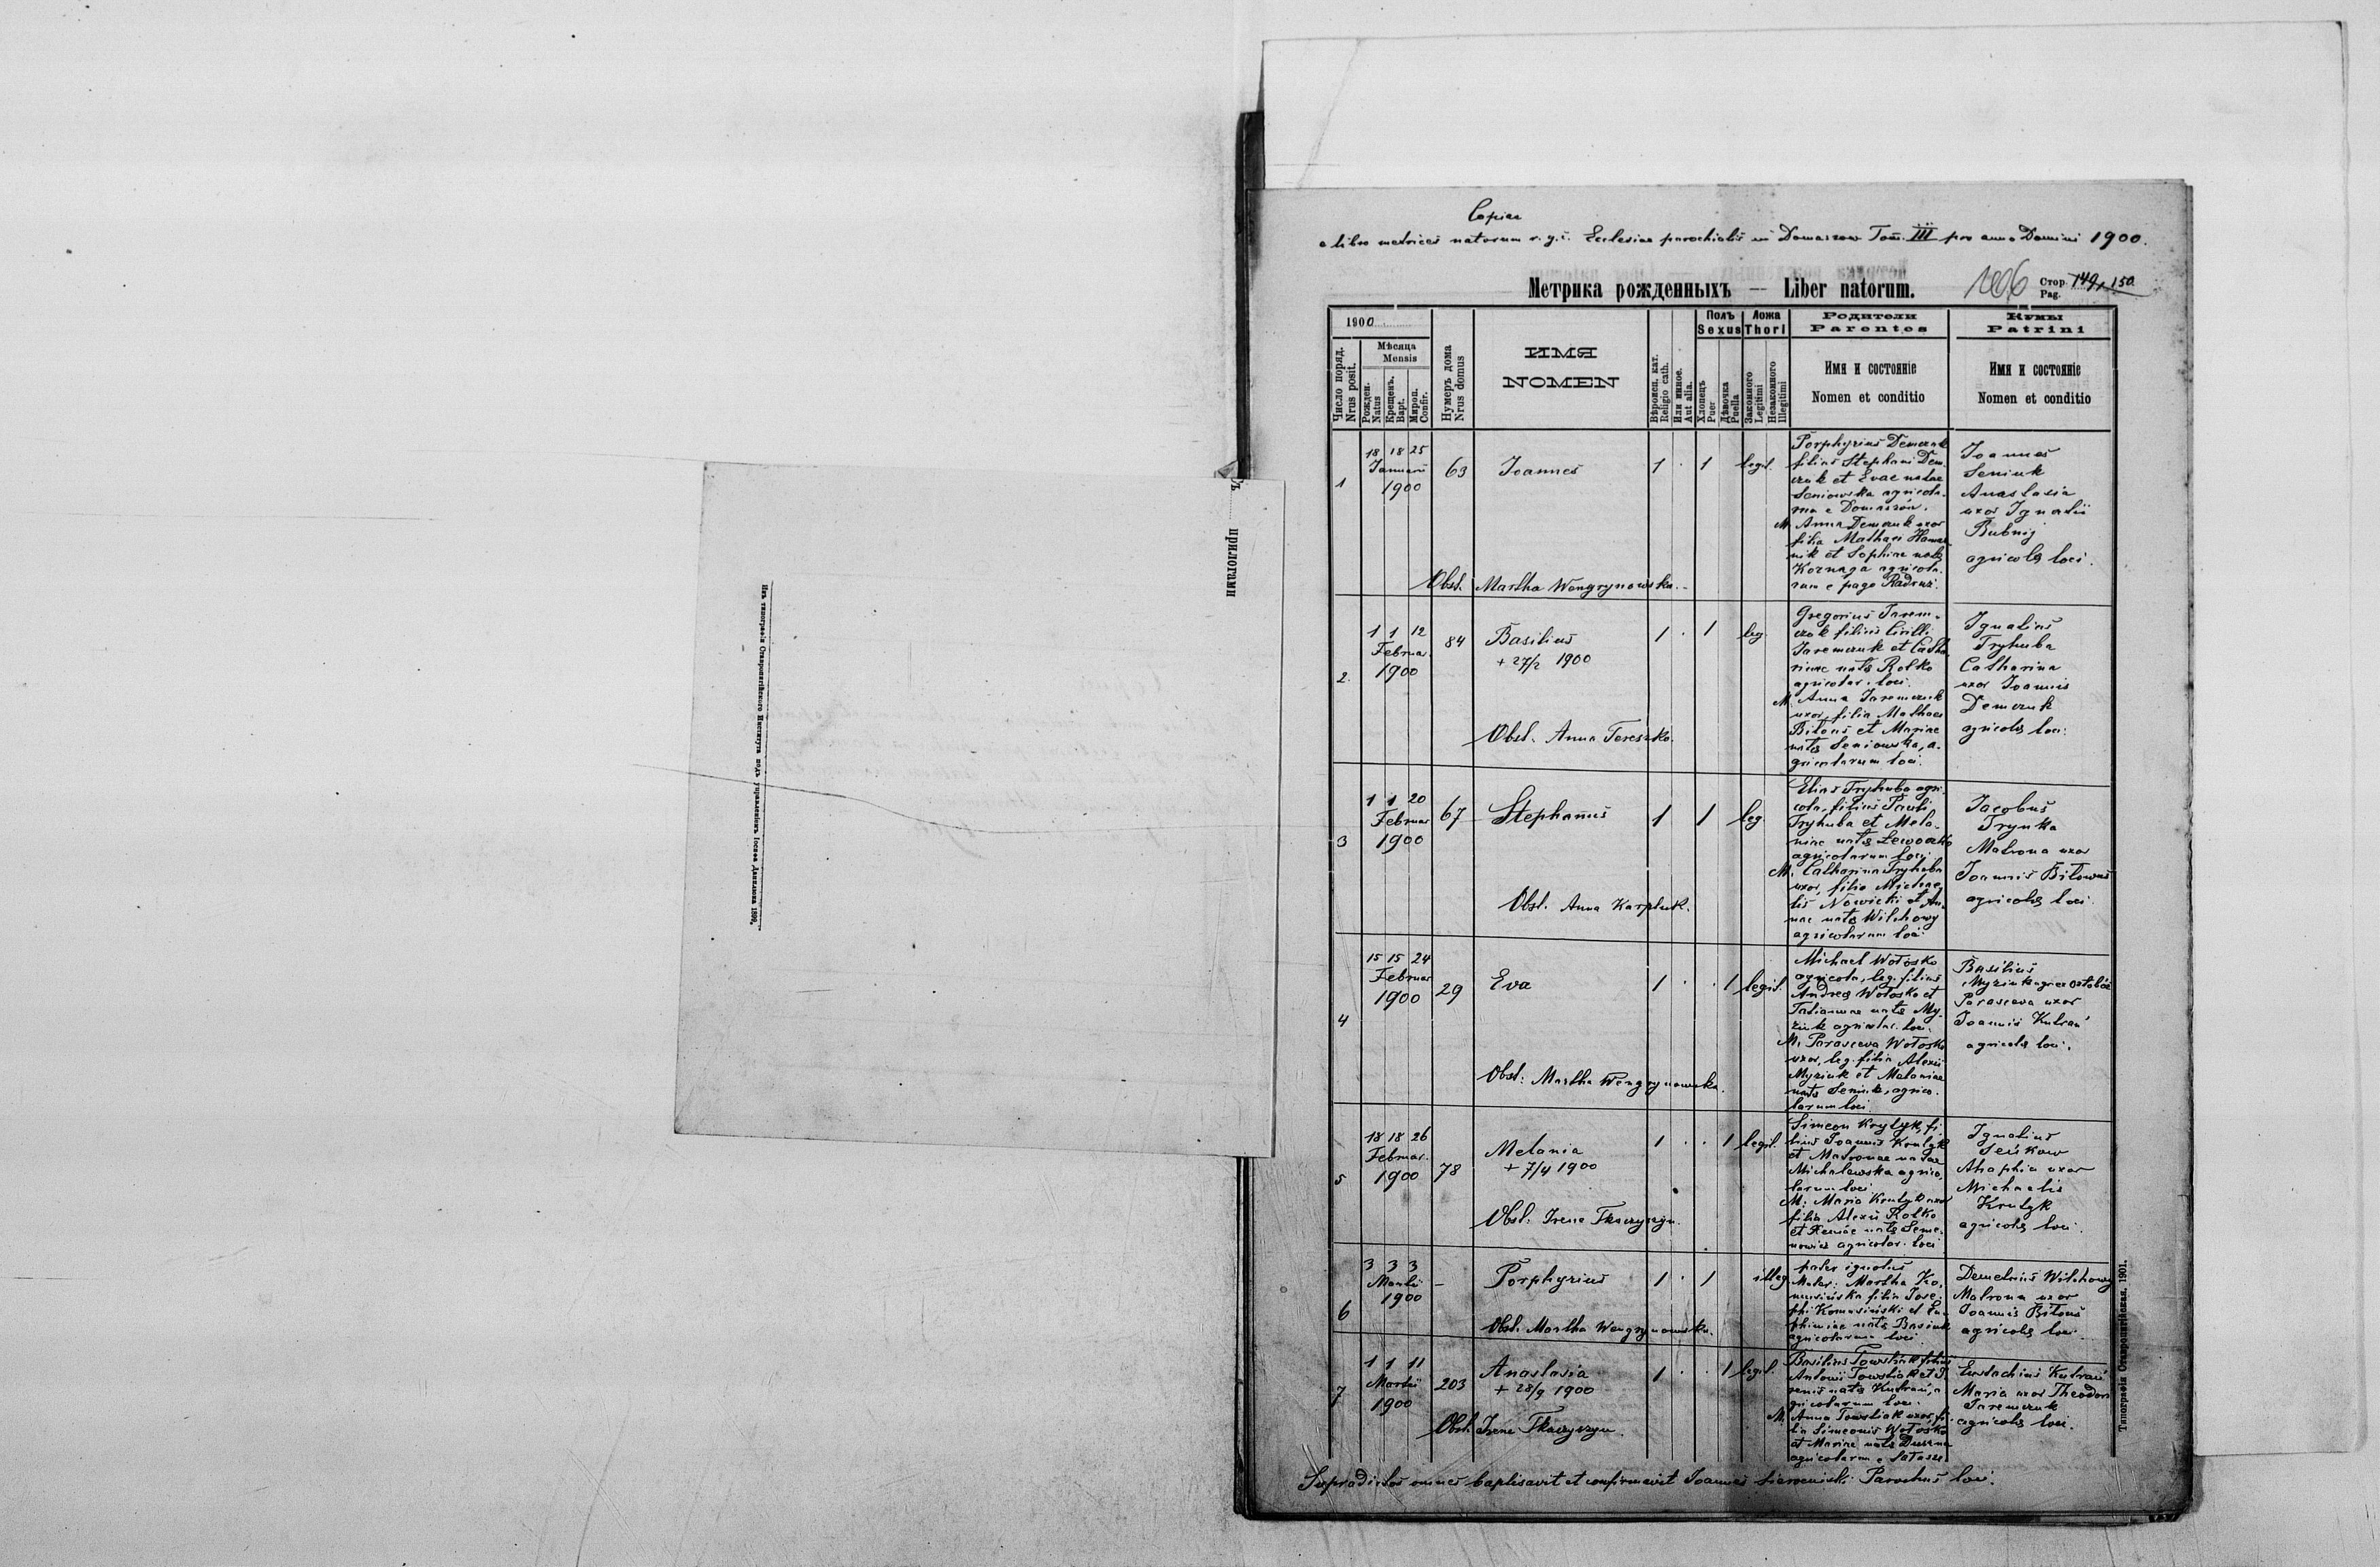 Copia
a libro metrices natorum r. g. c. Ecclesiae parochialis in Domaszow Tom. III pro anno Domini 1900.
Метрика рожденныхъ — Liber natorum.
1806
Стор. 149, 150
Pag.
1900
Число поряд.
Nrus posit.
Мѣсяца
Mensis
Рожден.
Natus
Крещенъ.
Bapt.
Мѵроп.
Confir.
Нумеръ дома
Nrus domus
ИМЯ
NOMEN
Вѣроисп. кат.
Religio cath.
Или инное.
Aut alia.
Полъ
Sexus
Хлопецъ
Puer
Дѣвочка
Puella
Ложа
Thori
Законного
Legitimi
Незаконного
Illegitimi
Родители
Parentes
Имя и состоянiе
Nomen et conditio
Кумы
Patrini
Имя и состоянiе
Nomen et conditio
1
18 18 25
Januarii
1900
63
Joannes
1 . 1 legit.
Obst. Martha Wengrynowska.
Porphyrius Demczuk
filius Stephani Dem-
czuk et Evae natae
Seniowska agricola-
rum e Domaszów.
M. Anna Demczuk uxor
filia Mathaei
et Sophiae natae
agricola-
rum e pago Radruż.
Joannes
Seniuk
Anastasia
uxor Ignatii
Bubnij
agricolae loci.
2.
1 1 12
Februar.
1900
84
Basilius
+ 27/2 1900
1 . 1 leg.
Obst. Anna Tereszko.
Gregorius Jarem-
czuk filius Cirilli
Jaremczuk et Catha-
rinae natae Rolko
agricolar. loci.
M. Anna Jaremczuk
uxor, filia Mathaei
Biłous et Mariae
natae Seniowska, a-
gricolarum loci.
Ignatius
Tryhuba
Catharina
uxor Joannis
Demczuk
agricolae loci.
3
1 1 20
Februar
1900
67
Stephanus
1 1 leg.
Obst. Anna Karpluk.
Elias Tryhuba agri-
cola, filius Pauli
Tryhuba et Mela-
niae natae
agricolarum loci
M. Catharina Tryhuba
uxor, filia Michae-
lis Nowicki et An-
nae natae Wilchowy
agricolarum loci.
Jacobus
Trynka
Matrona uxor
Joannis Biłowus
agricolae loci.
4
15 15 24
Februar
1900
29
Eva
1 . . 1 legit.
Obst: Martha Wengrynowska.
Michael Wołosko
agricola, leg. filius
Andreae Wołosko et
Tatiannae natae My-
ziuk agricolar. loci.
M. Parasceva Wołosko
uxor, leg. filia Alexii
Myziuk et Melaniae
natae Seniuk, agrico-
larum loci
Basilius
Myziuk
Parasceva uxor
Joannis Kutrań
agricolae loci.
5
18 18 26
Februar.
1900
78
Melania
+ 7/4 1900
1 . . 1 legit.
Obst. Irene Tkaczyszyn.
Simeon Krulyk, fi-
lius Joannis Krulyk
et Matronae natae
Michalewska agrico-
larum loci
M: Maria Krulyk uxor
filia Alexii Rolko
et Xeniae natae Seme-
nowicz agricolar. loci
Ignatius
Seńkow
Ahaphia uxor
Michaelis
Krulyk
agricolae loci.
6
3 3 3
Martii
1900
–
Porphyrius
1 . 1 illeg.
Obst. Martha Wengrynowska.
pater ignotus
Mater: Martha Ko-
musińska filia Jose-
phi Komusinski et Eu-
phimiae natae Basiuk
agricolarum loci
Demetrius Wilchowy
Matrona uxor
Joannis Biłous
agricolae loci.
7
1 1 11
Martii
1900
203
Anastasia
+ 28/9 1900
1 . . 1 legit.
Obst. Irene Tkaczyszyn.
Basilius Towstiuk filius
Antonii Towstiak et I-
renis natae Kutrań, a-
gricolarum loci.
M. Anna Towstiak uxor, fi-
lia Simeonis Wołosko
et Mariae natae
agricolarum e
Eustachius Kutrań
Maria uxor Theodori
Jaremczuk
agricolae loci.
Supradictos omnes baptisavit et confirmavit Joannes Parochus loci.
Типографія Ставропигійская. 1901.
прилогами
Изъ типографіи Ставропигійского Института подъ управленіемъ Іосифа Данилюка 1899.